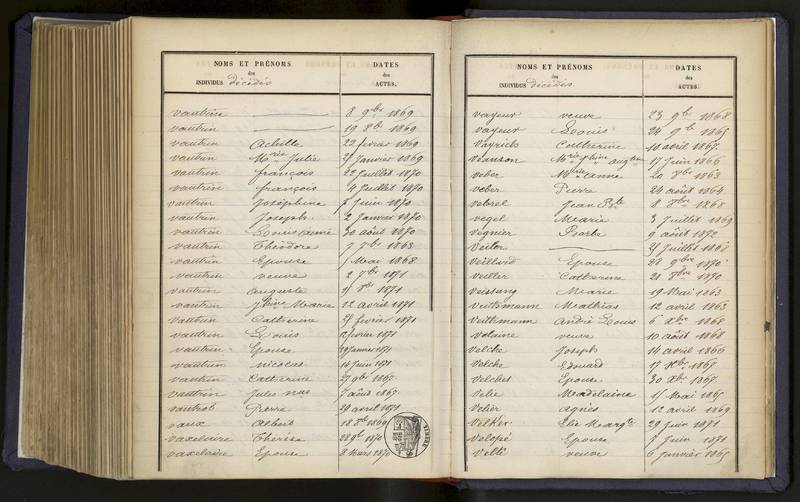 NOMS ET PRÉNOMS
des
INDIVIDUS décédés
DATES
des
ACTES.
vautrin 8 9bre 1869
vautrin 19 8bre 1869
vautrin Achille 22 fevrier 1869
vautrin Mrie Julie 21 Janvier 1869
vautrin françois 22 Juillet 1870
vautrin françois 4 Juillet 1870
vautrin Joséphine 7 Juin 1870
vautrin Joseph 2 Janvier 1870
vautrin 30 août 1870
vautrin Théodore 7 7bre 1863
vautrin Epouse 1 Mai 1868
vautrin veuve 2 7bre 1871
vautrin auguste 1871
vautrin Marie 12 avril 1871
vautrin Catherine fevrier 1871
vautrin Louis fevrier 1871
vautrin Epouse 29 Janvier 1871
vautrin nicolas 16 Juin 1871
vautrin Catherine 27 9bre 1867
vautrin Jules nas 7 août 1867
vautrot Pierre 29 avril 1871
vaux Albert 18 8bre 1869
vaxelaire Thérèse 28 9bre 1870
vaxelaire Epouse 8 Mars 1870
NOMS ET PRÉNOMS
des
INDIVIDUS décédés
DATES
des
ACTES.
vayeur veuve 23 9bre 1868
vayeur Louis 24 9bre 1865
Vayrich Catherine 10 avril 1867
Mrie 17 Juin 1866
veber Mrie anne 20 8bre 1863
veber Pierre 24 août 1864
vebrel Jean Bte 8 1868
vegel Marie 3 Juillet 1869
vegnier Barbe 9 août 1872
Veiler Juillet
Veillard Epouse 28 9bre 1870
veiller Catherine 21 1870
veistang Marie 19 Mai 1863
veitzmann Mathias 12 avril 1863
Veithmann André Louis 6 Xbre 1868
volaine veuve 10 août 1868
Velche Joseph 14 avril 1866
Velche Edouard 17 Xbre 1865
Velches Epouse 30 Xbre 1867
Velie Madelaine Mai 1865
Velier agnès 12 avril 1869
Velker Elie Margte 29 Juin 1871
Velopé Epouse 7 Juin 1871
Velté veuve 6 Janvier 1865